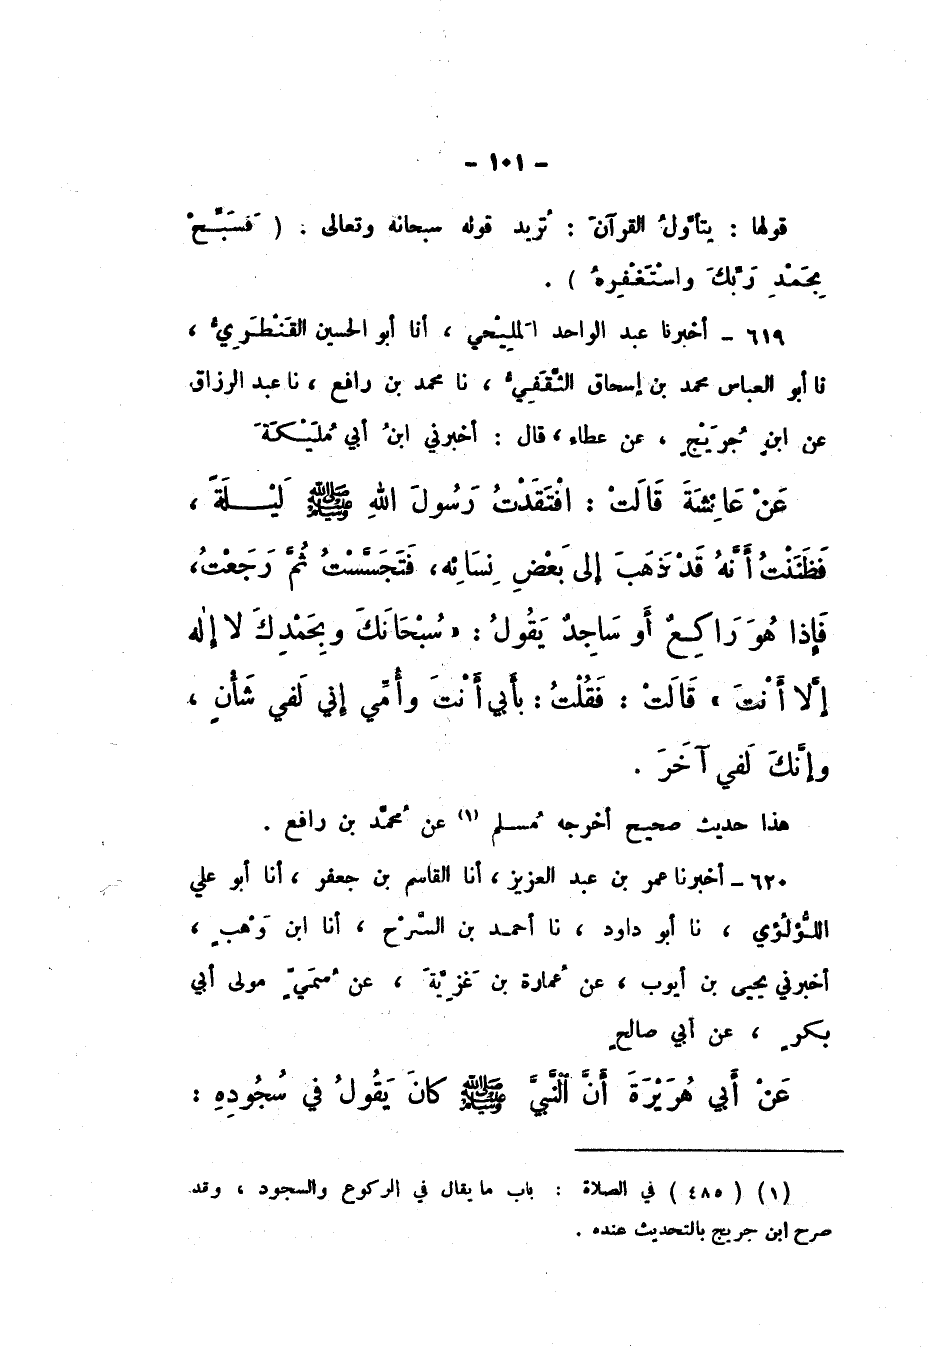 - ١٠١ -
قولها : يتأوَّلُ القرآنَ : تُريد قوله سبحانه وتعالى : ( فَسَبِّحْ
بِحَمْدِ رَبِّكَ واسْتَغْفِرهُ ) .
٦١٩ - أخبرنا عبد الواحد المَلِيْحي ، أنا أبو الحسين القَنْطَرِيُّ ،
نا أبو العباس محمد بن إسحاق الثَّقَفيُّ ، نا محمد بن رافع ، نا عبد الرزاق
عن ابنِ جُرَيْجٍ ، عن عطاء ، قال : أخبرني ابنُ أبي مُلَيْكَةَ
عَنْ عَائِشَةَ قَالَتْ : افْتَقَدْتُ رَسُولَ اللهِ ﷺ لَيْلَةً ،
فَظَنَنْتُ أَنَّهُ قَدْ ذَهَبَ إلى بَعْضِ نِسَائِه، فَتَجَسَّسْتُ ثُمَّ رَجَعْتُ،
فَإذا هُوَ رَاكِعٌ أَو سَاجِدٌ يَقُولُ : « سُبْحَانَكَ وبِحَمْدِكَ لا إلٰه
إلَّا أَنْتَ » قَالَتْ : فَقُلْتُ : بأَبي أَنْتَ وأُمِّي إني لَفي شَأْنٍ ،
وإنَّكَ لَفي آخَرَ .
هذا حديث صحيح أخرجه مُسلم (١) عن محمَّد بن رافع .
٦٢٠ - أخبرنا عمر بن عبد العزيز ، أنا القاسم بن جعفر ، أنا أبو علي
اللُّؤلُؤي ، نا أبو داود ، نا أحمد بن السَّرْح ، أنا ابن وَهْبٍ ،
أخبرني يحيى بن أيوب ، عن عُمارة بن غَزِيَّةَ ، عن سُمَيٍّ مولى أبي
بكرٍ ، عن أبي صالحٍ
عَنْ أَبي هُرَيْرَةَ أَنَّ النَّبيَّ ﷺ كانَ يَقُولُ في سُجُودِهِ :
(١) ( ٤٨٥ ) في الصلاة : باب ما يقال في الركوع والسجود ، وقد
صرح ابن جريج بالتحديث عنده .